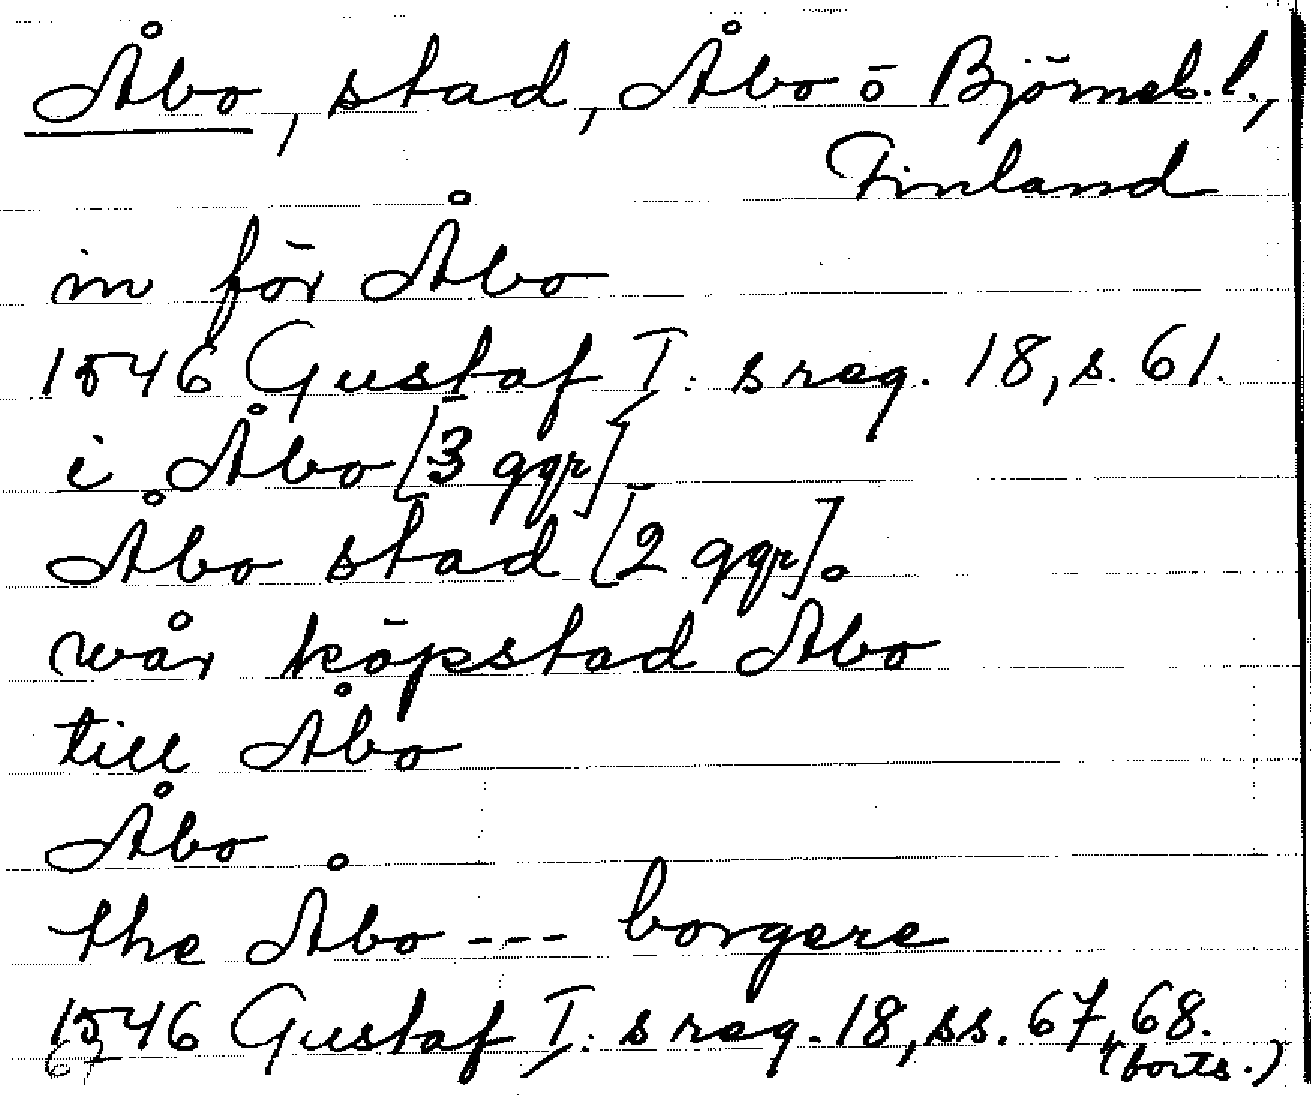 Åbo, stad, Åbo ō Björneb. l.,
Finland
in för Åbo
1546 Gustaf I:s reg. 18, s. 61.
i Åbo [3 ggr]
Åbo stad [2 ggr].
wår köpstad Åbo
till Åbo
Åbo
the Åbo --- borgere
1546 Gustaf I:s reg. 18, ss. 67, 68.
67 (forts.)